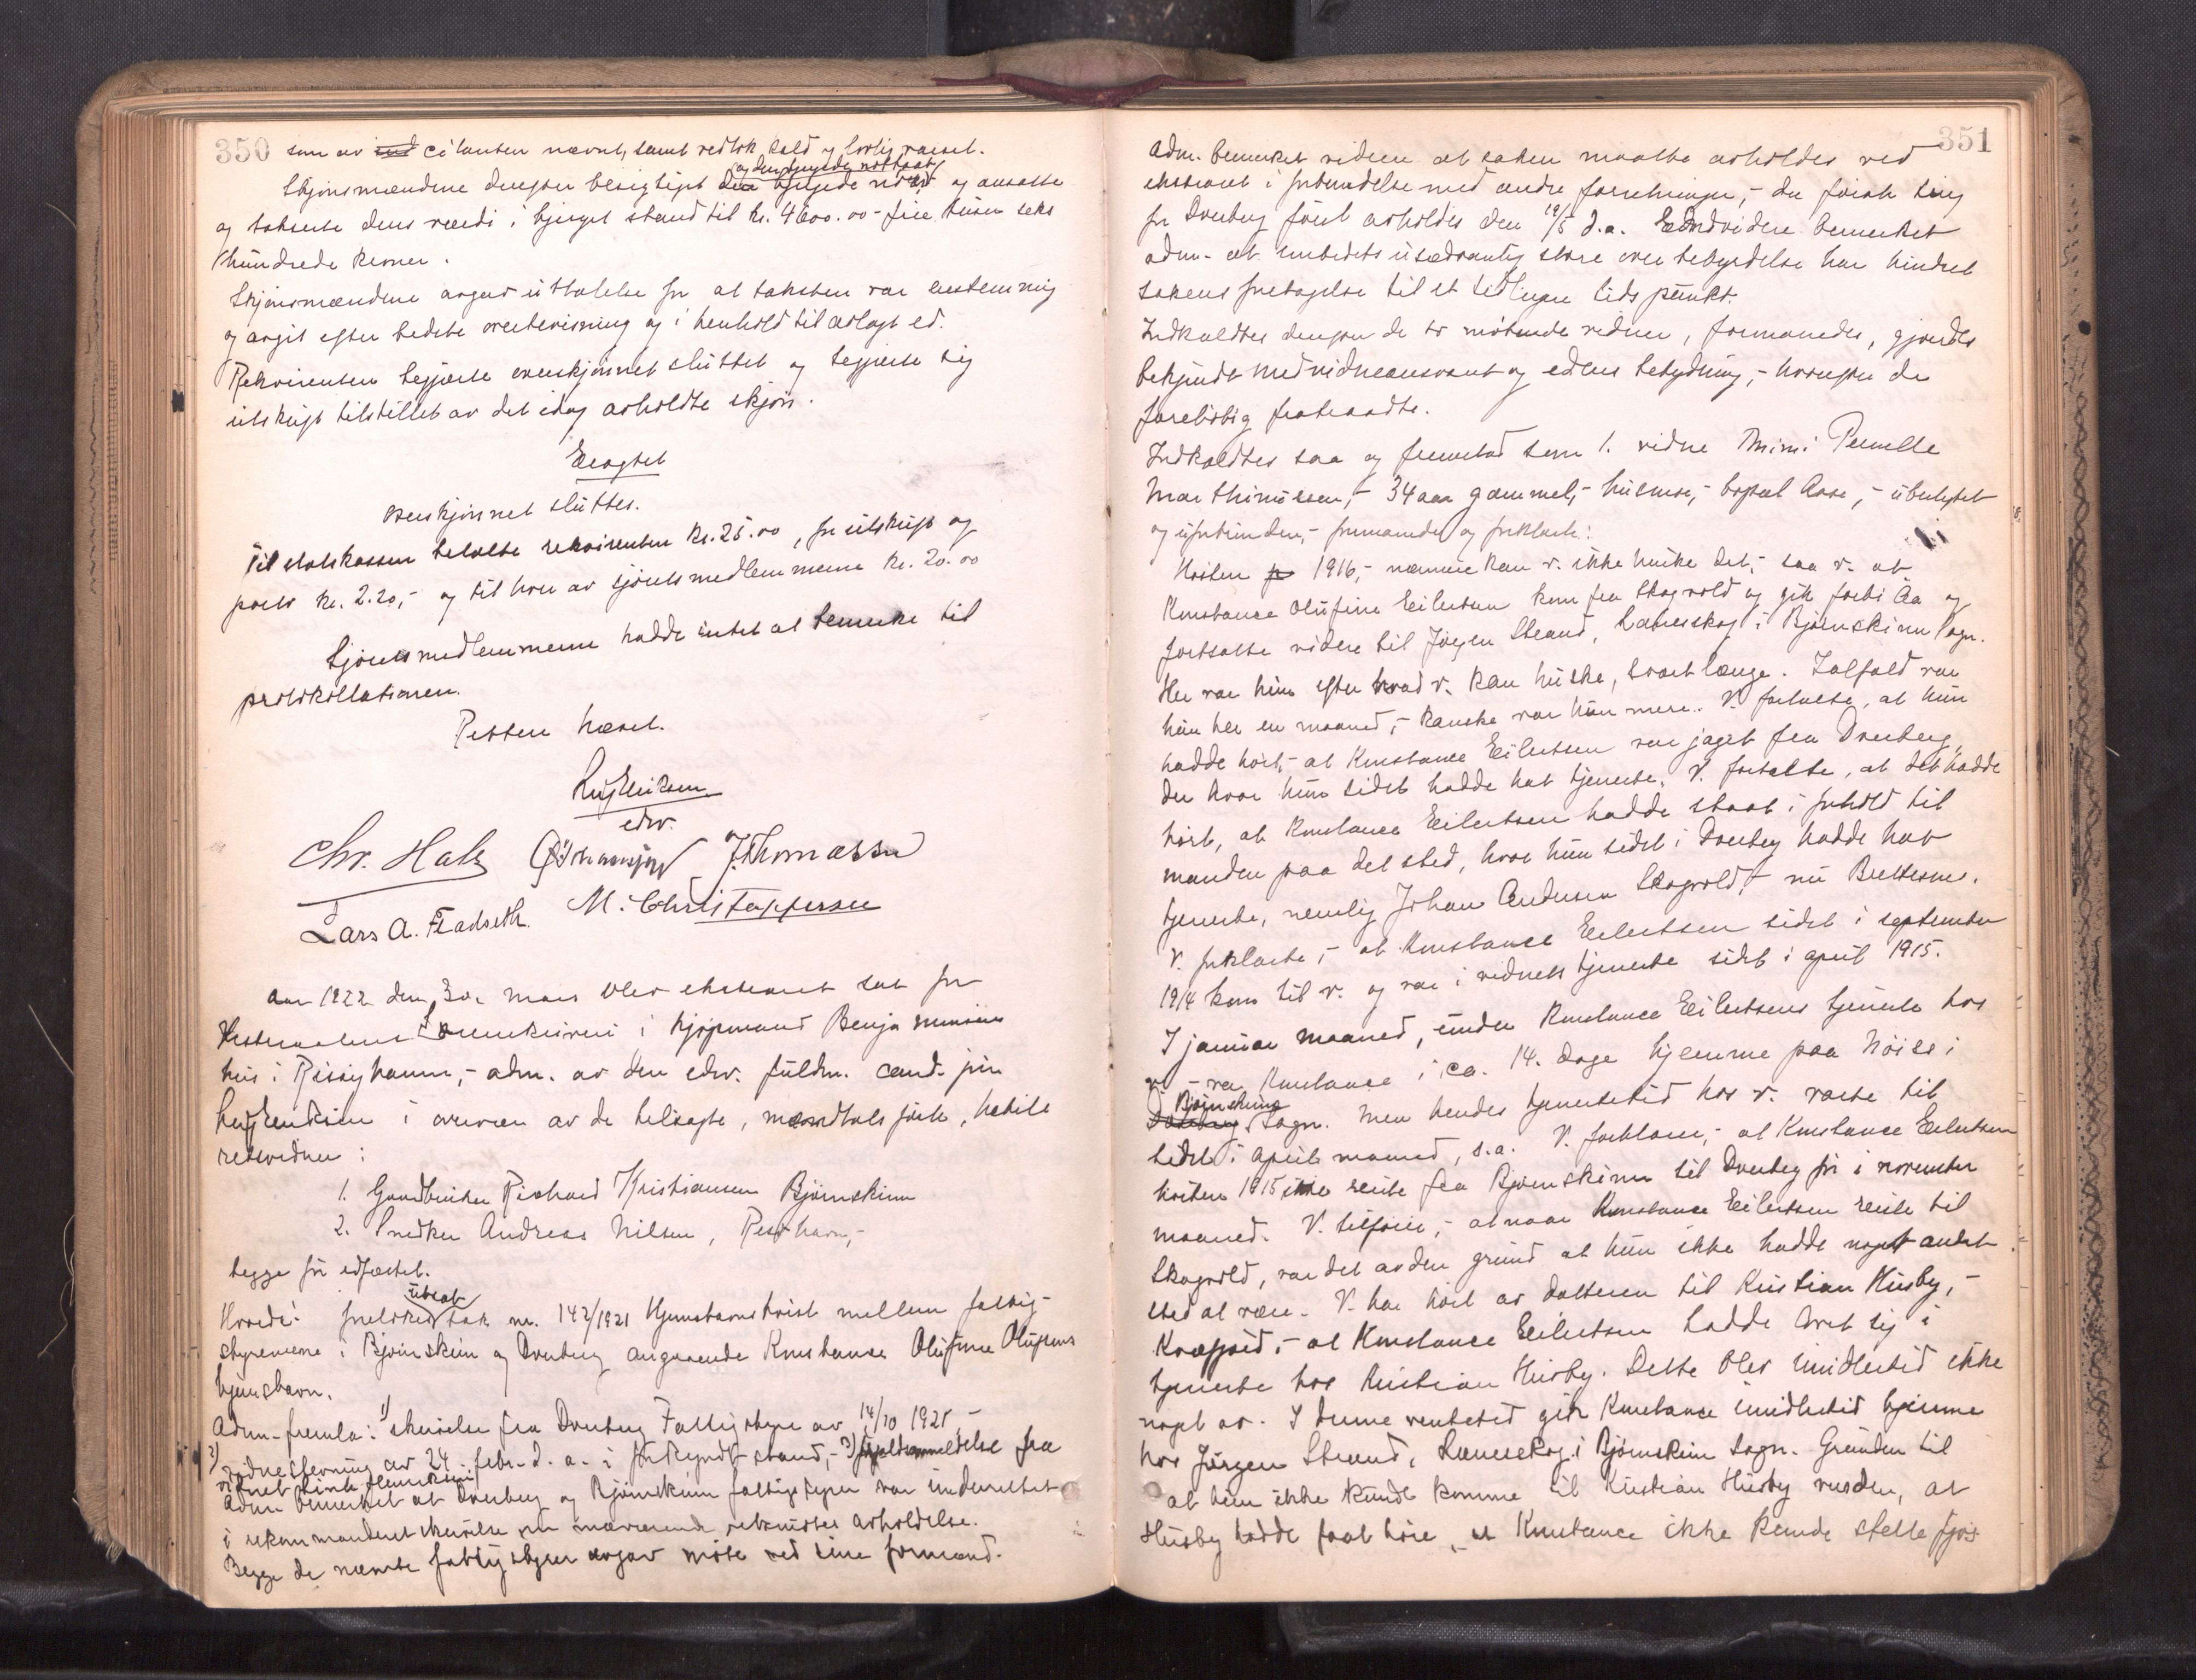 350
som av citanten nævnt, samt vedtok kald og lovlig varsel.
og den bjergede notpart
Skjønsmændene derefter besigtiget den bjergede og ansatte
og takserte dens værdi i bjerget stand til kr. 4600.00 - fire tusen seks
hundrede kroner.
Skjønsmændene avgav uttalelse for at taksten var enstemmig
og avgit efter bedste overbevisning og i henhold til avlagt ed.
Rekvirenten begjærte overskjønnet sluttet og begjærte sig
utskrift tilstillet av det idag avholdte skjøn.
Eragtet
overskjønnet sluttes.
Til statskassen betalte rekvirenten kr. 25.00, for utskrift og
porto kr. 2.20,- og til hver av sjøretsmedlemmerne kr. 20.00
Sjøretsmedlemmerne hadde intet at bemerke til
protokollationen.
Retten hævet.
edsv.
Chr. Hals J. Thomassen
Lars A. Fladseth M. Christoffersen
Aar 1922 den 30. mars blev ekstraret sat for
Vesteraalens sorenskriveri i kjøpmand Benjaminsens
hus i Risøyhamn,- adm. av den edsv. fuldm. cand. jur.
i overvær av de tilsagte, mandtalsførte, habile
retsvidner:
1. Gaardbruker Richard Kristiansen Bjørnskinn
2. Snedker Andreas Nilsen, Risøyhavn,-
begge før edfæstet.
utsat
Hvorda: sak nr. 142/1921 Hjemstavnstvist mellem fattig-
styrerne i Bjørnskin og Dverberg angaaende Konstance Olufine Olufsens
hjemstavn.
Adm. fremla: 1) skrivelse fra Dverberg Fattigstyre av 14/10 1921,-
2) vidnestevning av 24. febr. d.a. i forkyndt stand,- 3) fra
vidnet
Adm. bemerket at Dverberg og Bjørnskinn fattigstyrer var underrettet
i rekommanderet skrivelse om nærværende retsmøtes avholdelse.
Begge de nævnte fattigstyrer avgav møte ved sine formænd.
351
Adm. bemerket videre at saken maatte avholdes ved
ekstraret i forbindelse med andre forretninger,- da første ting
for Dverberg først avholdes den 19/5 d.a. Endvidere bemerket
adm. at embedets usædvanlig store overbebyrdelse har hindret
sakens foretagelse til et tidligere tidspunkt.
Indkaldtes derefter de to møtende vidner, formanedes, gjordes
bekjendt med vidneansvaret og edens betydning,- hvorefter de
foreløbig fratraadte.
Indkaldtes saa og fremstod som 1. vidne Mimi Pernelle
Marthinussen,- 34 aar gammel,- husmor,- bopæl Aase,- ubeslegtet
og uforbunden,- formanedes og forklarte:
Høsten 1916,- nærmere kan v. ikke huske det,- saa v. at
Konstance Olufine Eilertsen kom fra Skogvold og gik forbi Aa og
fortsatte videre til Jørgen Strand, Lovesskog i Bjørnskinn sogn.
Her var hun efter hvad v. kan huske, svært længe. Ialfald var
hun her en maaned,- kanske var hun mere. V. fortalte, at hun
hadde hørt,- at Konstance Eilertsen var jaget fra Dverberg,
der hvor hun sidst hadde hat tjeneste. V. fortalte, at det hadde
hørt, at Konstance Eilertsen hadde staat i forhold til
manden paa det sted, hvor hun sidst i Dverberg hadde hat
tjeneste, nemlig Johan Andersen Skogvold,- nu
V. forklarte,- at Konstance Eilertsen sidst i september
1914 kom til v. og var i vidnets tjeneste sidst i april 1915.
I januar maaned, under Konstance Eilertsens tjeneste hos
v. - var Konstance i ca. 14. dage hjemme paa Nøiss i
Bjørnskinn
Dverberg sogn. Men hendes tjenestetid hos v. varte til
sidst i april maaned, s.a. V. forklarer,- at Konstance Eilertsen
høsten 1915 ikke reiste fra Bjørnskinn til Dverberg før i november
maaned. V. tilføier,- at naar Konstance Eilertsen reiste til
Skogvold, var det av den grund at hun ikke hadde noget andet
sted at være. V. har hørt av datteren til Kristian Husby,-
Kvæfjord,- at Konstance Eilertsen hadde lovet sig i
tjeneste hos Kristian Husby. Dette blev imidlertid ikke
noget av. I denne ventetid gik Konstance imidlertid hjemme
hos Jørgen Strand, Lovesskog i Bjørnskinn sogn. Grunden til
at hun ikke kunde komme til Kristian Husby var den, at
Husby hadde faat høre, at Konstance ikke kunde stelle fjøs